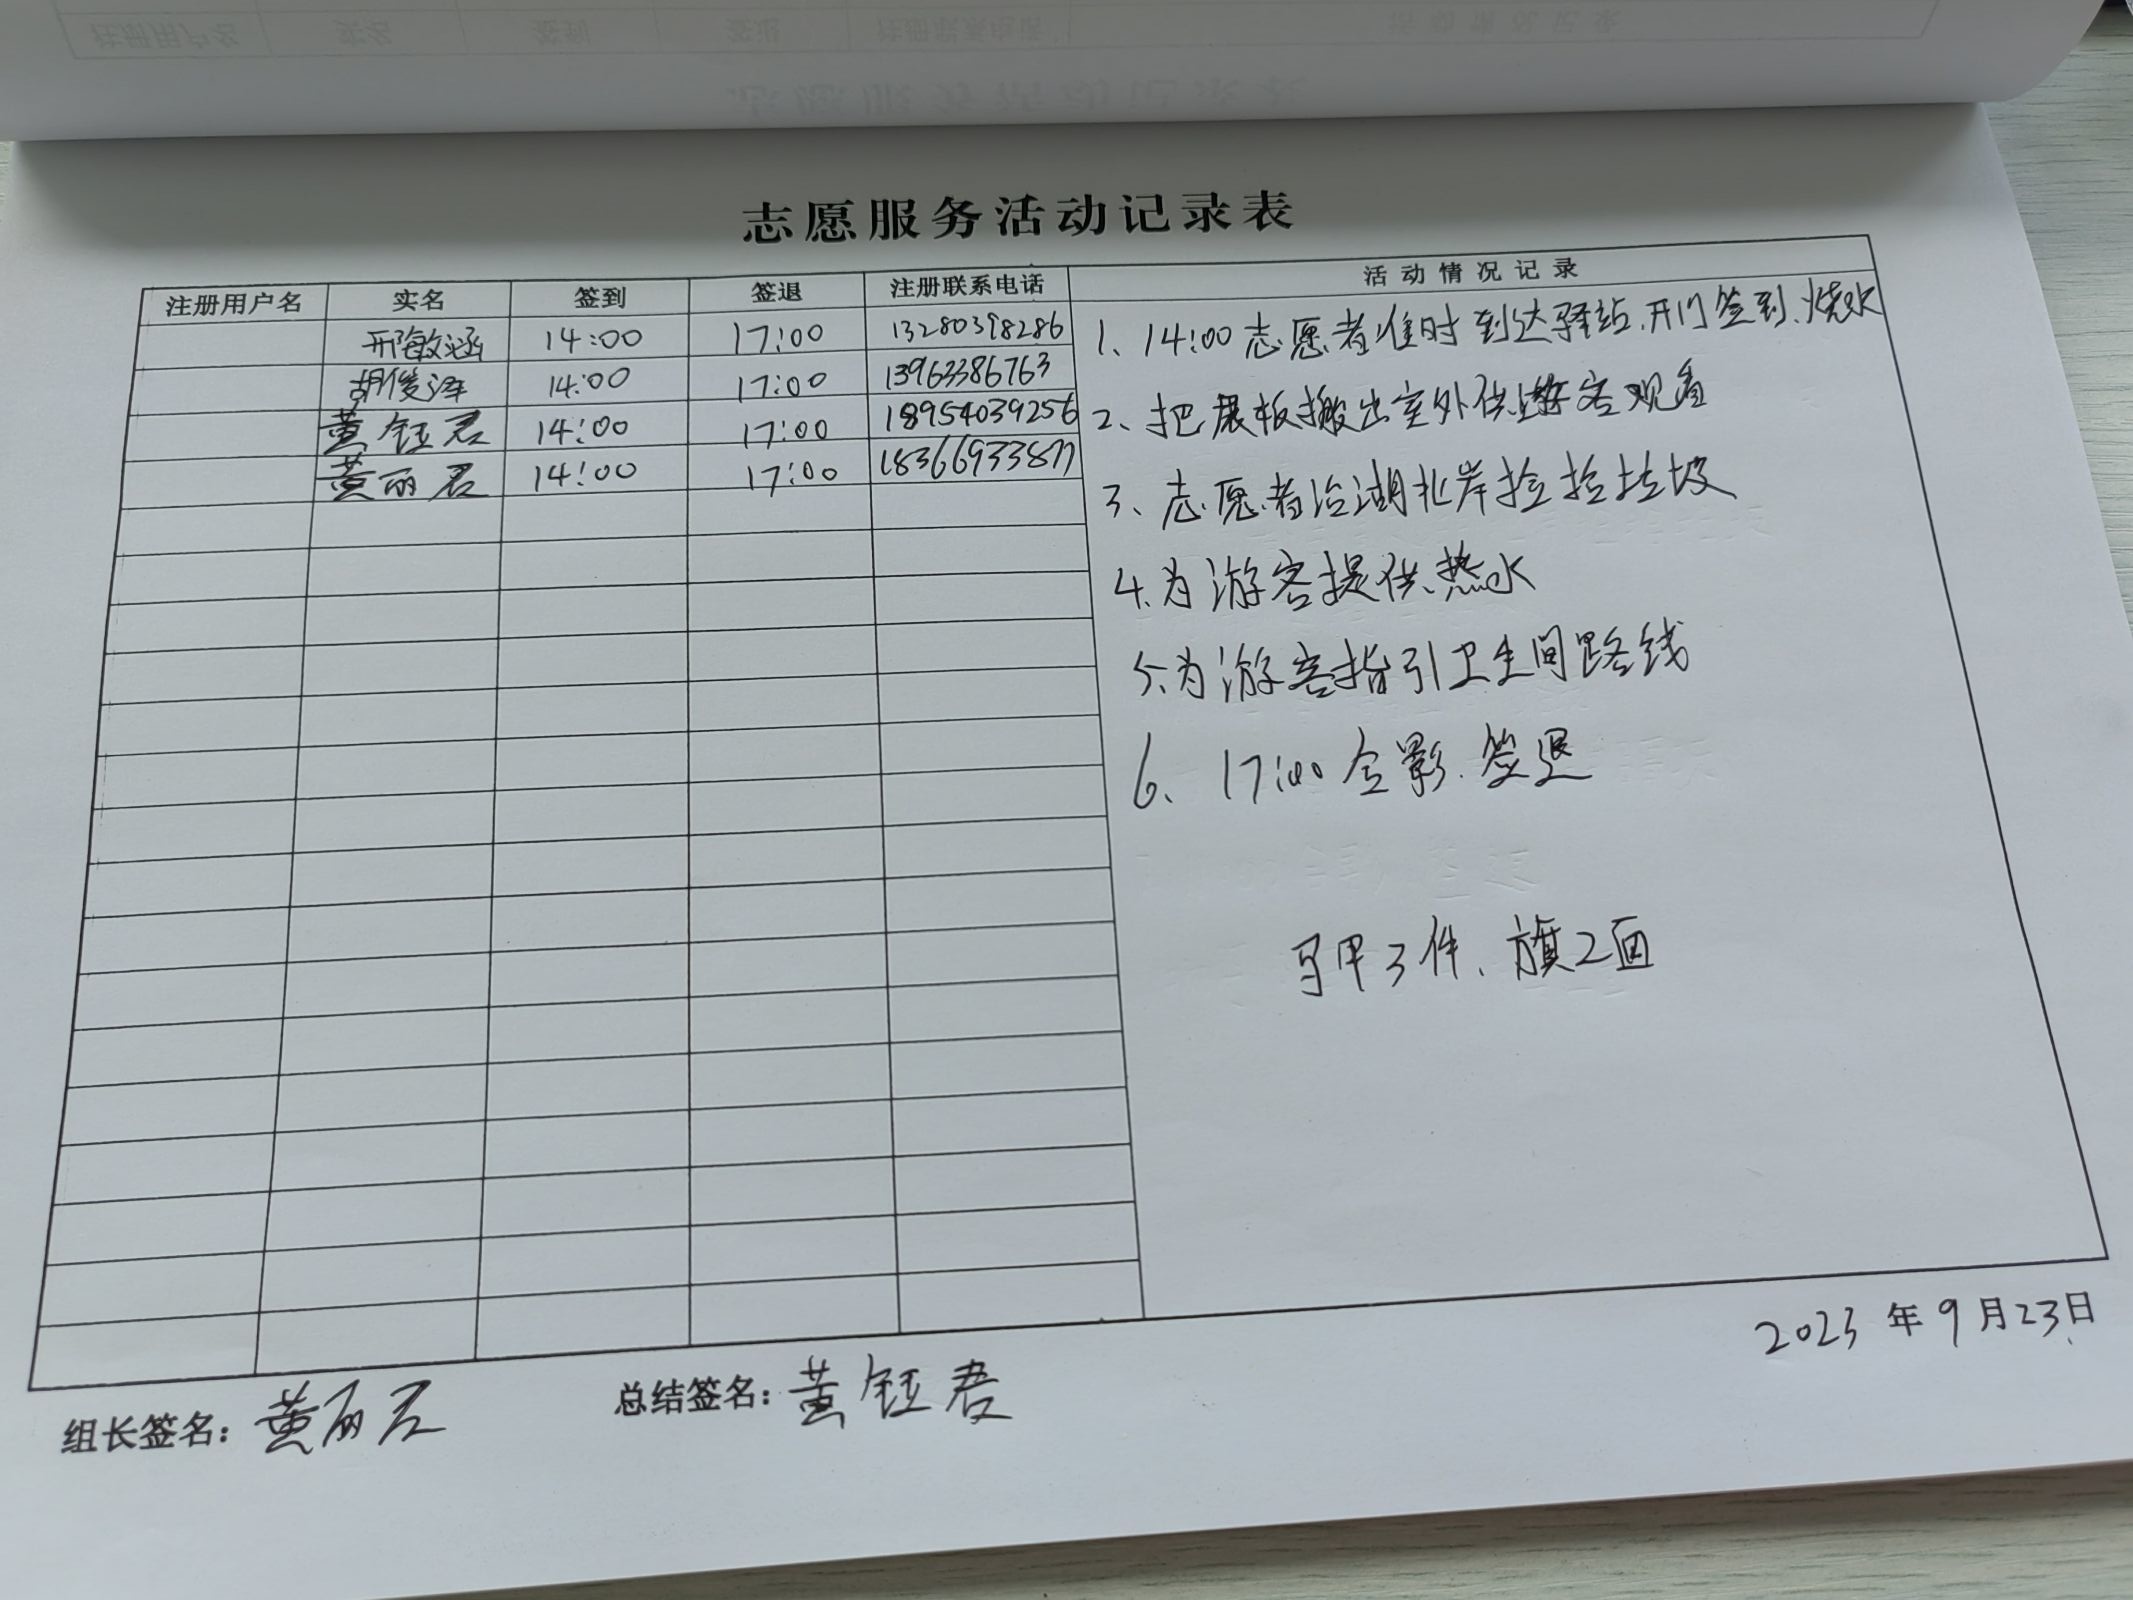 志愿服务活动记录表
注册用户名 实名 签到 签退 注册联系电话 活动情况记录
邢敏涵 14:00 17:00 13280398286
胡俊泽 14:00 17:00 13963386763
黄钰君 14:00 17:00 18954039256
黄丽君 14:00 17:00 18366933877
1、14:00志愿者准时到达驿站、开门签到、烧水
2、把展板搬出室外供游客观看
3、志愿者沿湖北岸捡拾垃圾
4、为游客提供热水
5、为游客指引卫生间路线
6、17:00合影、签退
马甲3件、旗2面
2023年9月23日
组长签名：黄丽君 总结签名：黄钰君